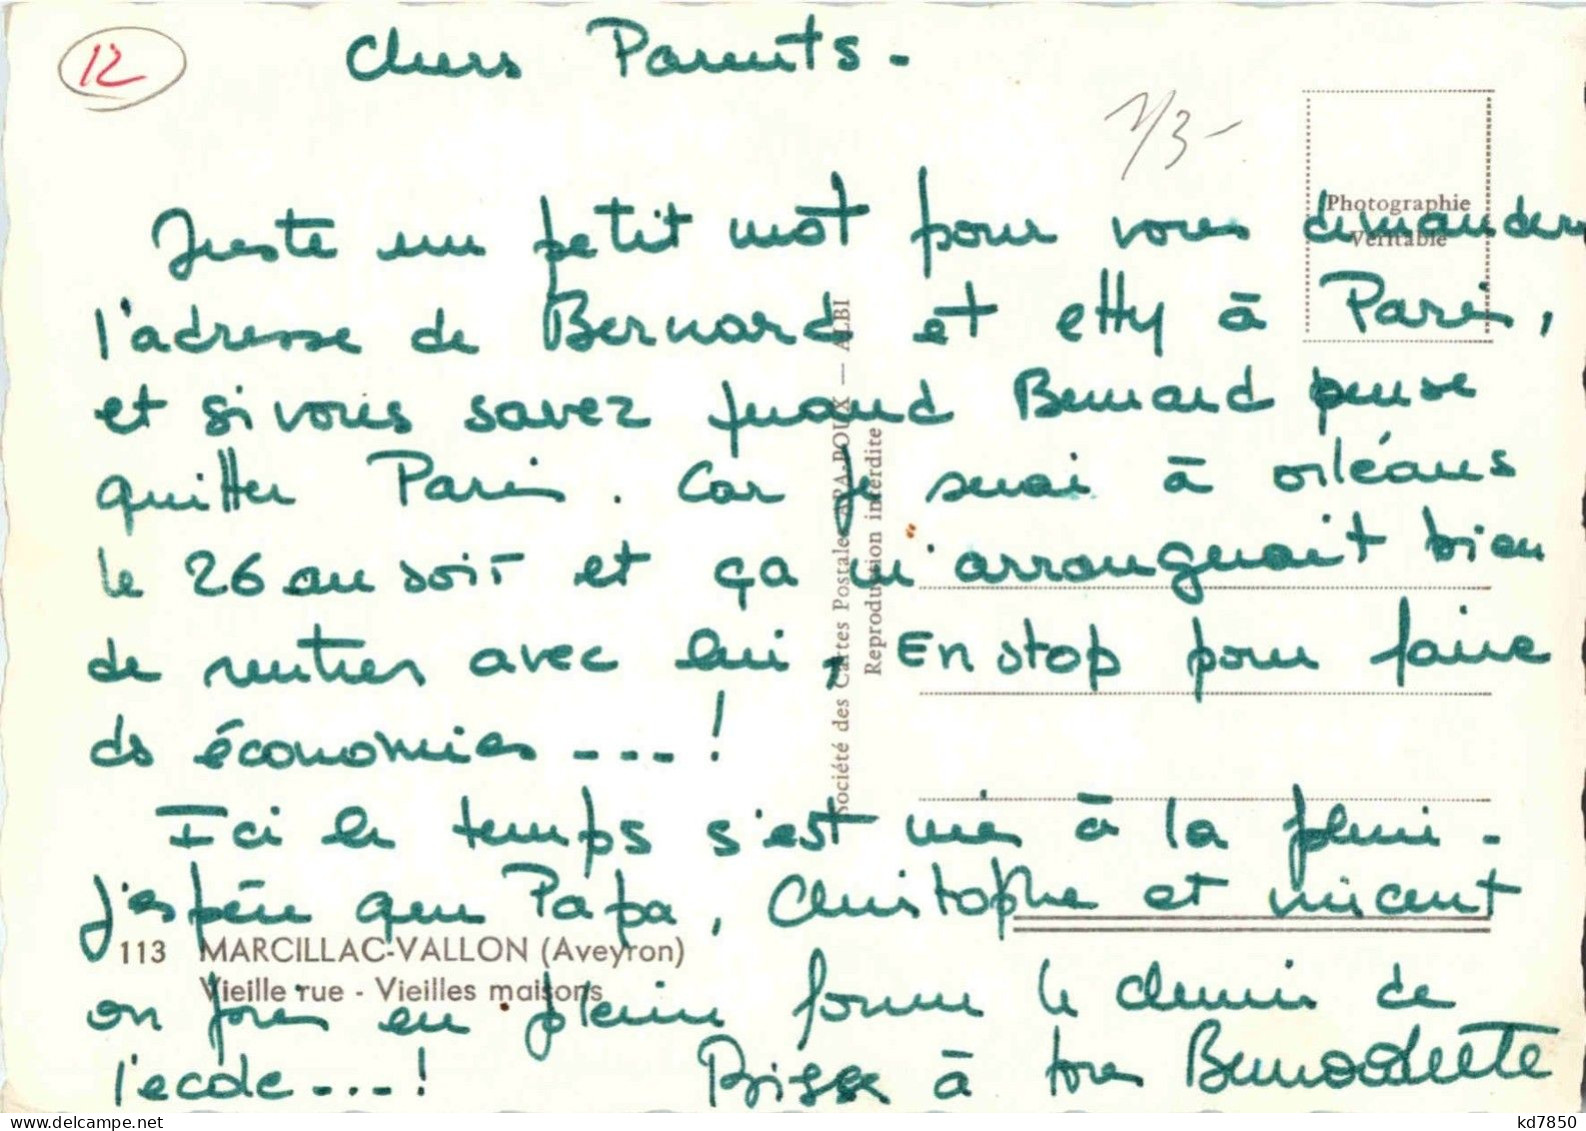 12
Chers Parents -
1/3 -
Photographie
Véritable
Juste un petit mot pour vous demander
l'adresse de Bernard et etty à Paris,
et si vous savez quand Bernard pense
quitter Paris. Car je serai à orléans
le 26 au soir et ça m'arrangerait bien
de rentrer avec lui, En stop pour faire
ds économies ---!
Ici le temps s'est mis à la pluie -
J'espère que Papa, Christophe et vincent
on pris en pleine forme le chemin de
l'ecole ---!
Bisse à tous Bernadette
113 MARCILLAC-VALLON (Aveyron)
Vieille rue - Vieilles maisons
Société des Cartes Postales APA-POUX — ALBI
Reproduction interdite
kd7850